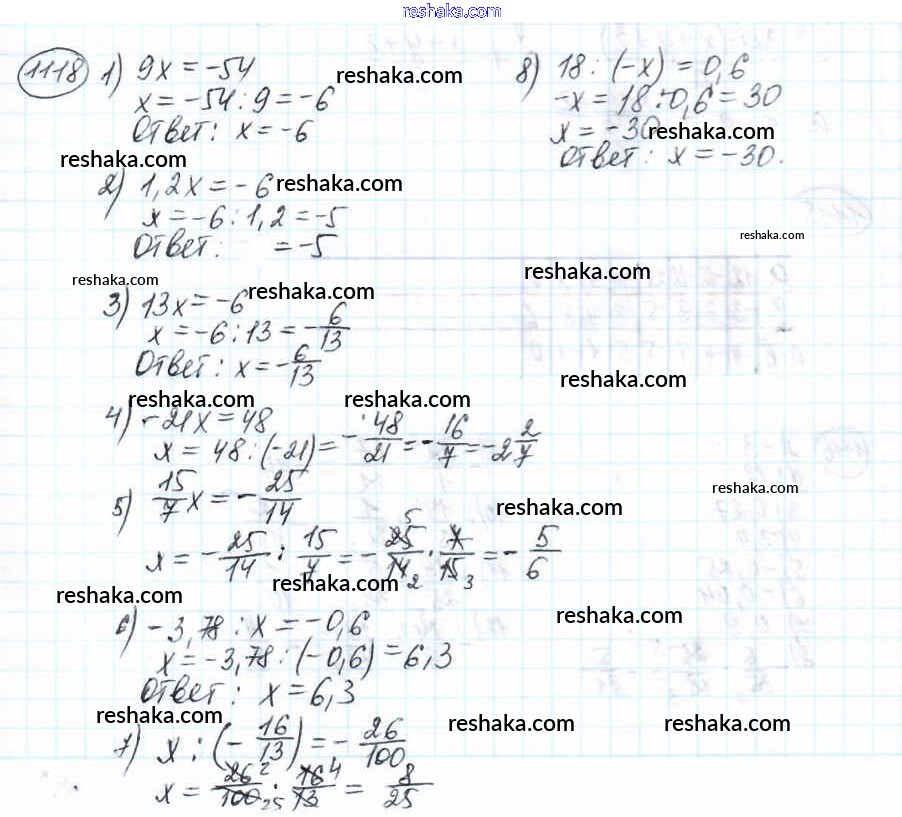 reshaka.com
1118 1) 9x = -54
reshaka.com
x = -54 : 9 = -6
Ответ: x = -6
reshaka.com
2) 1,2x = -6
reshaka.com
x = -6 : 1,2 = -5
Ответ: = -5
reshaka.com
reshaka.com
3) 13x = -6
x = -6 : 13 = -6/13
Ответ: x = -6/13
reshaka.com
reshaka.com
4) -21x = 48
x = 48 : (-21) = -48/21 = -16/7 = -2 2/7
5) 15/7 x = -25/14
x = -25/14 : 15/7 = -25/14 · 7/15 = -5/6
5 2 3
reshaka.com
reshaka.com
6) -3,78 : x = -0,6
x = -3,78 : (-0,6) = 6,3
Ответ: x = 6,3
reshaka.com
7) x : (-16/13) = -26/100
x = 26/100 · 16/13 = 8/25
2 25 4
8) 18 : (-x) = 0,6
-x = 18 : 0,6 = 30
x = -30
reshaka.com
Ответ: x = -30.
reshaka.com
reshaka.com
reshaka.com
reshaka.com
reshaka.com
reshaka.com
reshaka.com
reshaka.com